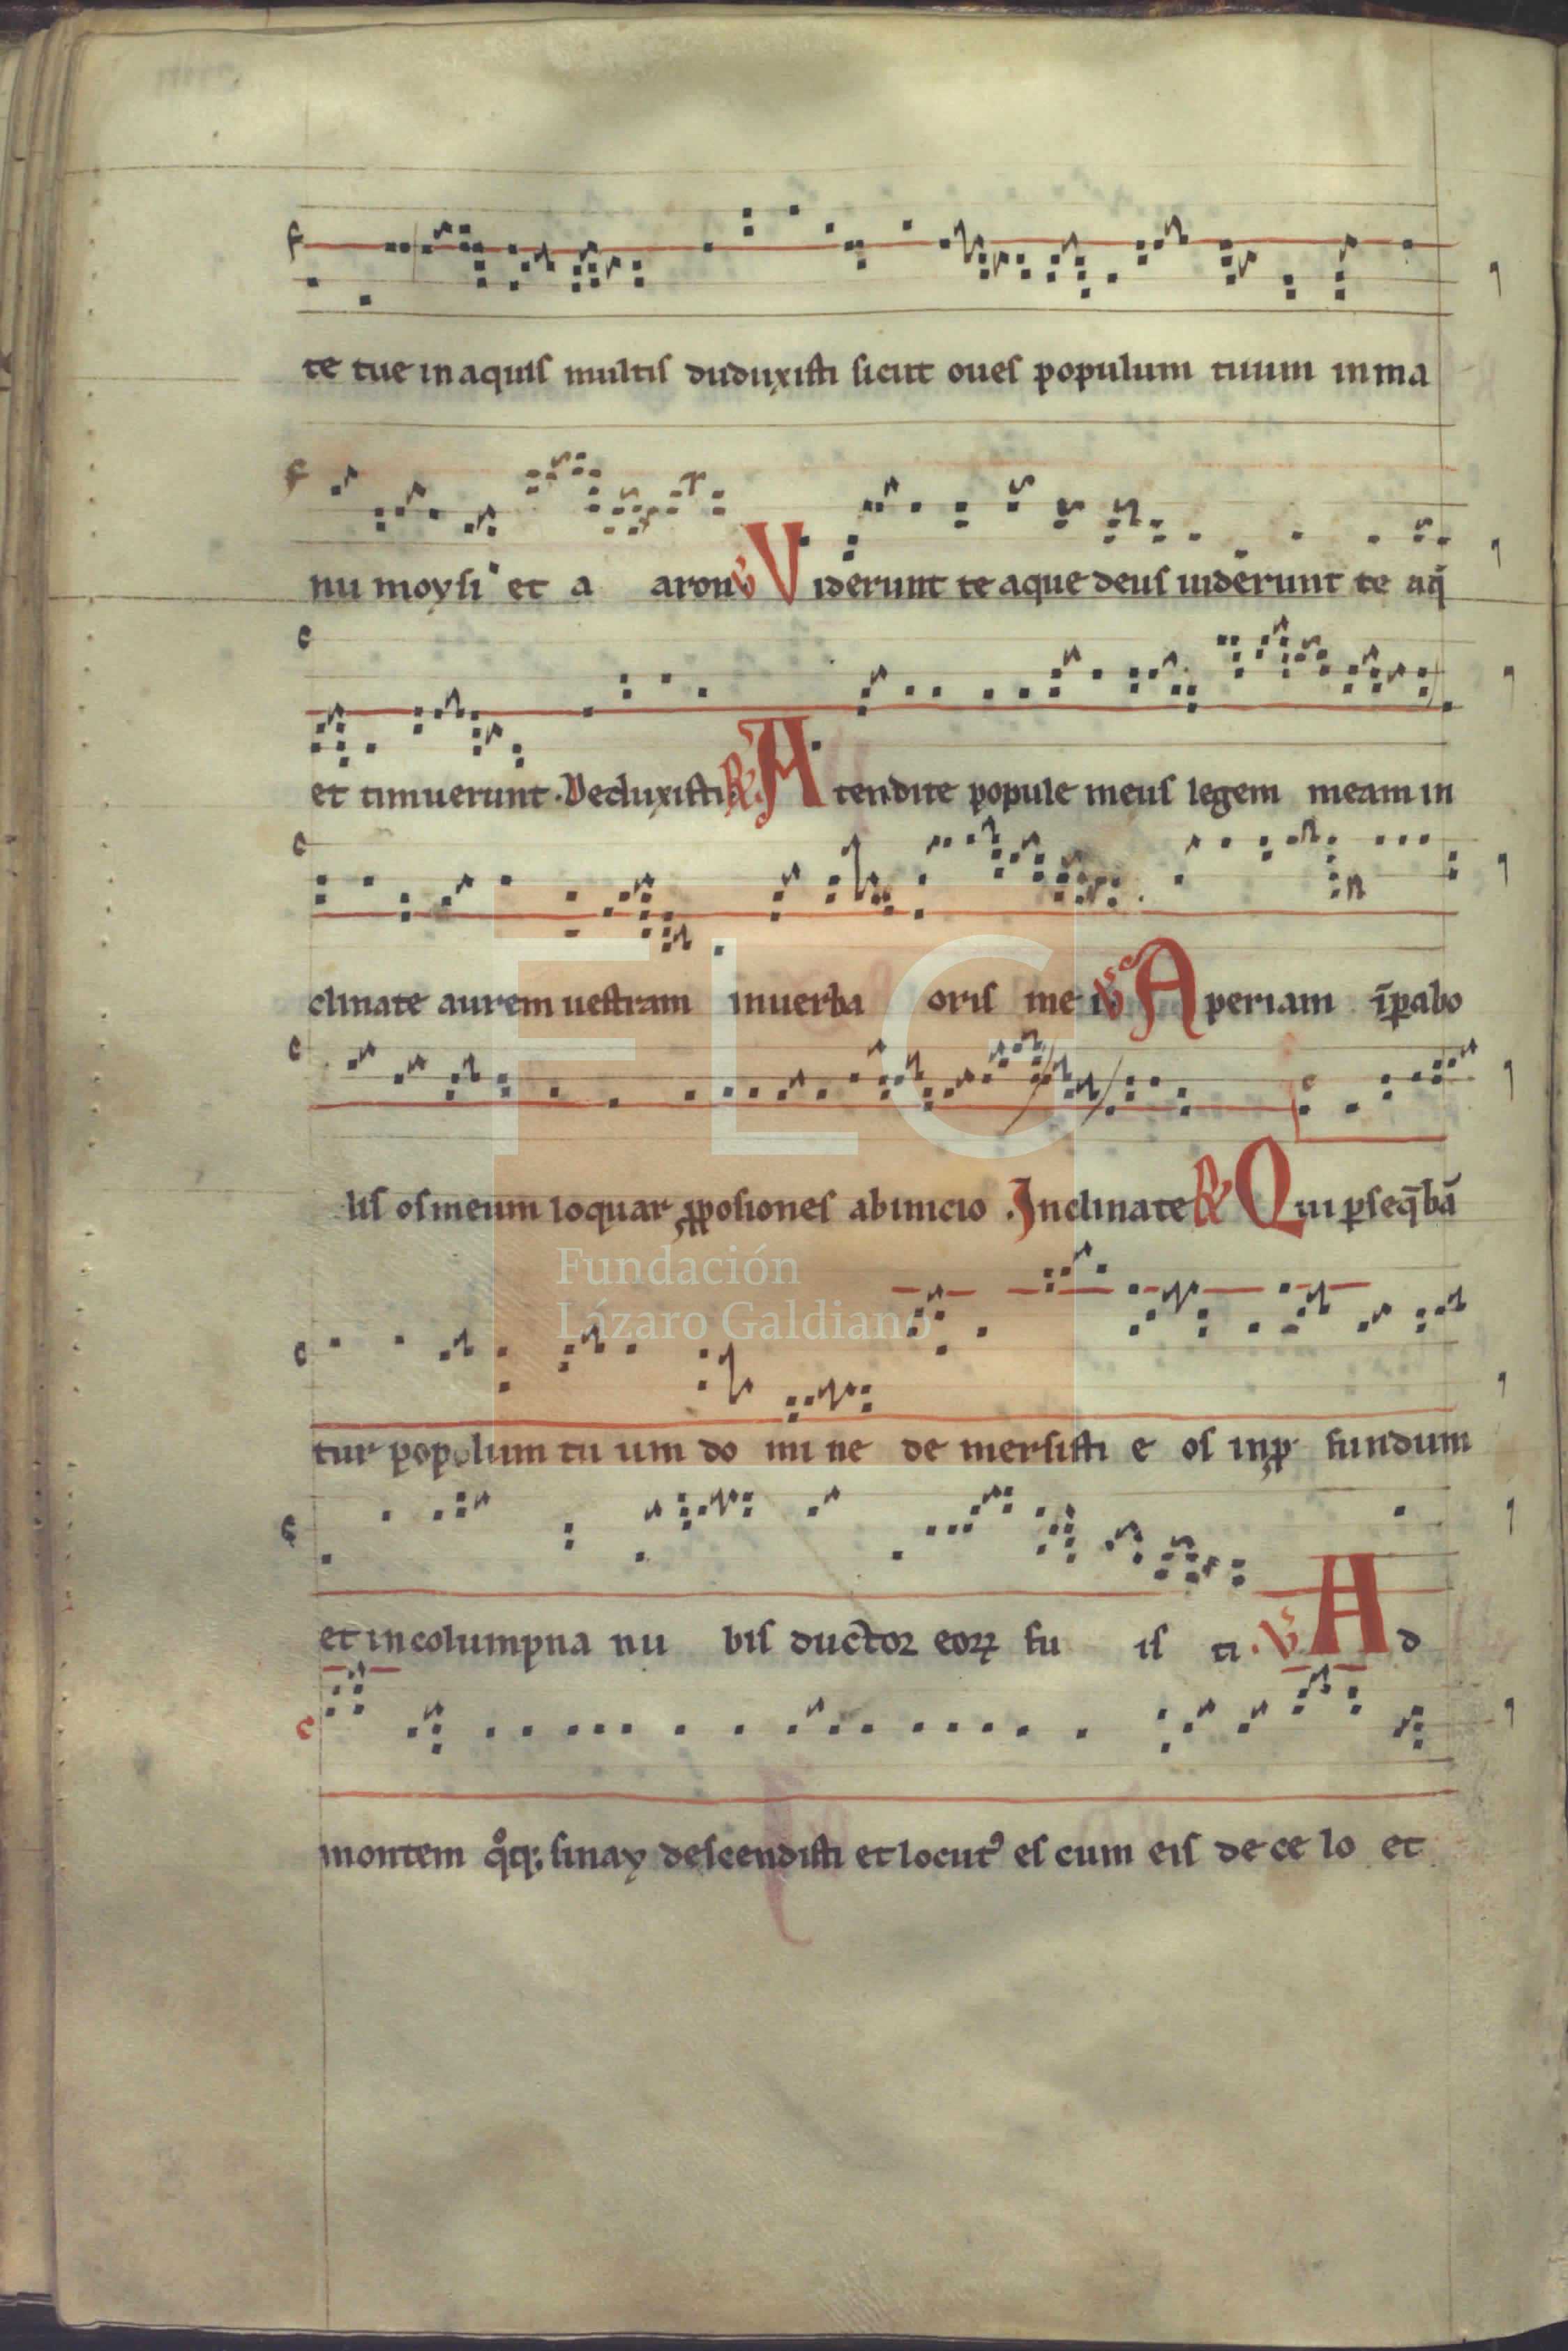 te tue in aquis multis diduxisti sicut oues populum tuum in ma
nu moysi et a aron ℣ Viderunt te aque deus uiderunt te aq̄
et timuerunt . Deduxisti ℟ Atendite popule meus legem meam in
clinate aurem uestram in uerba oris me i ℣ Aperiam ī pabo
lis os meum loquar ꝓposiones ab inicio . Inclinate ℟ Qui ꝑseq̄bā
tur populum tu um do mi ne de mersisti e os in ꝓ fundum
et in columpna nu bis ductor eoꝝ fu is ti . ℣ Ad
montem sinay descendisti et locutꝰ es cum eis de ce lo et
FLG
Fundación
Lázaro Galdiano